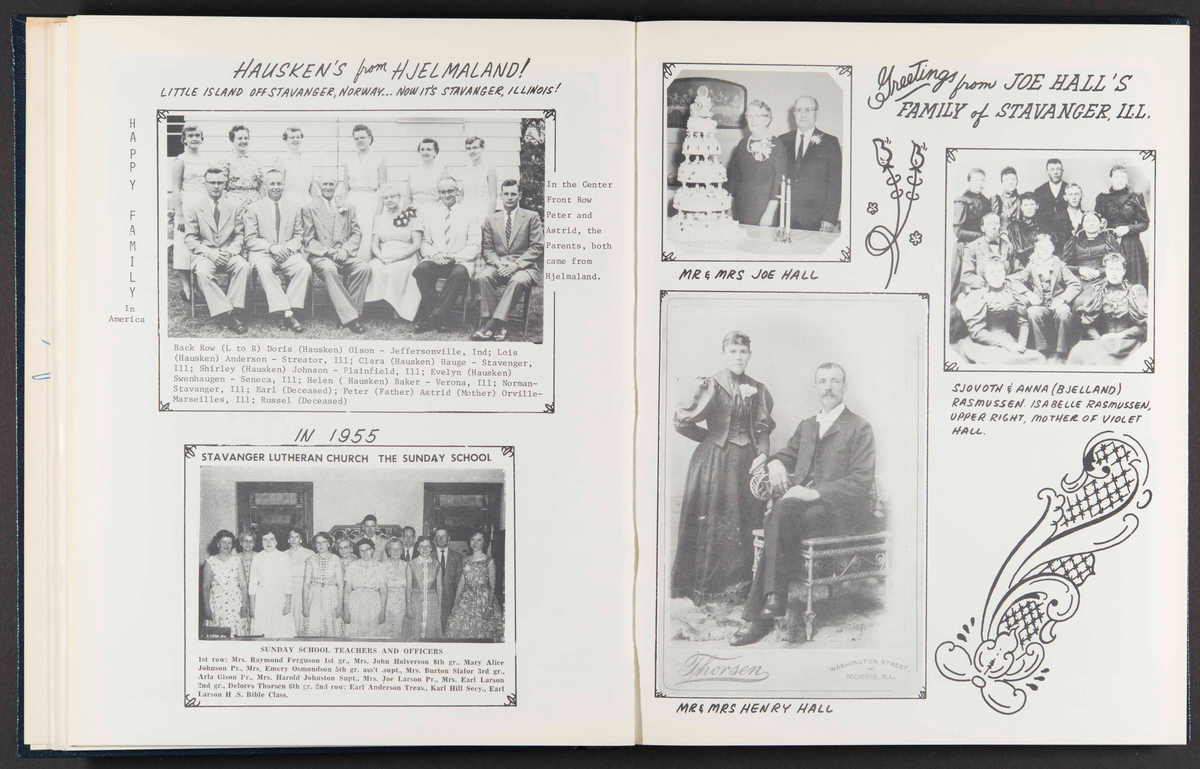 HAUSKEN'S from HJELMALAND!
LITTLE ISLAND OFF STAVANGER, NORWAY... NOW IT'S STAVANGER, ILLINOIS!
HAPPY FAMILY
In
America
In the Center
Front Row
Peter and
Astrid, the
Parents, both
came from
Hjelmaland.
Back Row (L to R) Doris (Hausken) Olson - Jeffersonville, Ind; Lois
(Hausken) Anderson - Streator, Ill; Clara (Hausken) Hauge - Stavenger,
Ill; Shirley (Hausken) Johnson - Plainfield, Ill; Evelyn (Hausken)
Swenhaugen - Seneca, Ill; Helen ( Hausken) Baker - Verona, Ill; Norman-
Stavanger, Ill; Earl (Deceased); Peter (Father) Astrid (Mother) Orville-
Marseilles, Ill; Russel (Deceased)
IN 1955
STAVANGER LUTHERAN CHURCH THE SUNDAY SCHOOL
SUNDAY SCHOOL TEACHERS AND OFFICERS
1st row: Mrs. Raymond Ferguson 1st gr., Mrs. John Holverson 8th gr., Mary Alice
Johnson Pr., Mrs. Emery Osmundson 5th gr. ass't .supt., Mrs. Burton Slafor 3rd gr.,
Arla Gison Pr., Mrs. Harold Johnston Supt., Mrs. Joe Larson Pr., Mrs. Earl Larson
2nd gr., Delores Thorsen 6th gr. 2nd row: Earl Anderson Treas., Karl Hill Secy., Earl
Larson H .S. Bible Class.
Greetings from JOE HALL'S
FAMILY of STAVANGER, ILL.
MR & MRS JOE HALL
SJOVOTH & ANNA (BJELLAND)
RASMUSSEN. ISABELLE RASMUSSEN,
UPPER RIGHT, MOTHER OF VIOLET
HALL.
Thorsen
WASHINGTON STREET,
MORRIS, ILL.
MR & MRS HENRY HALL